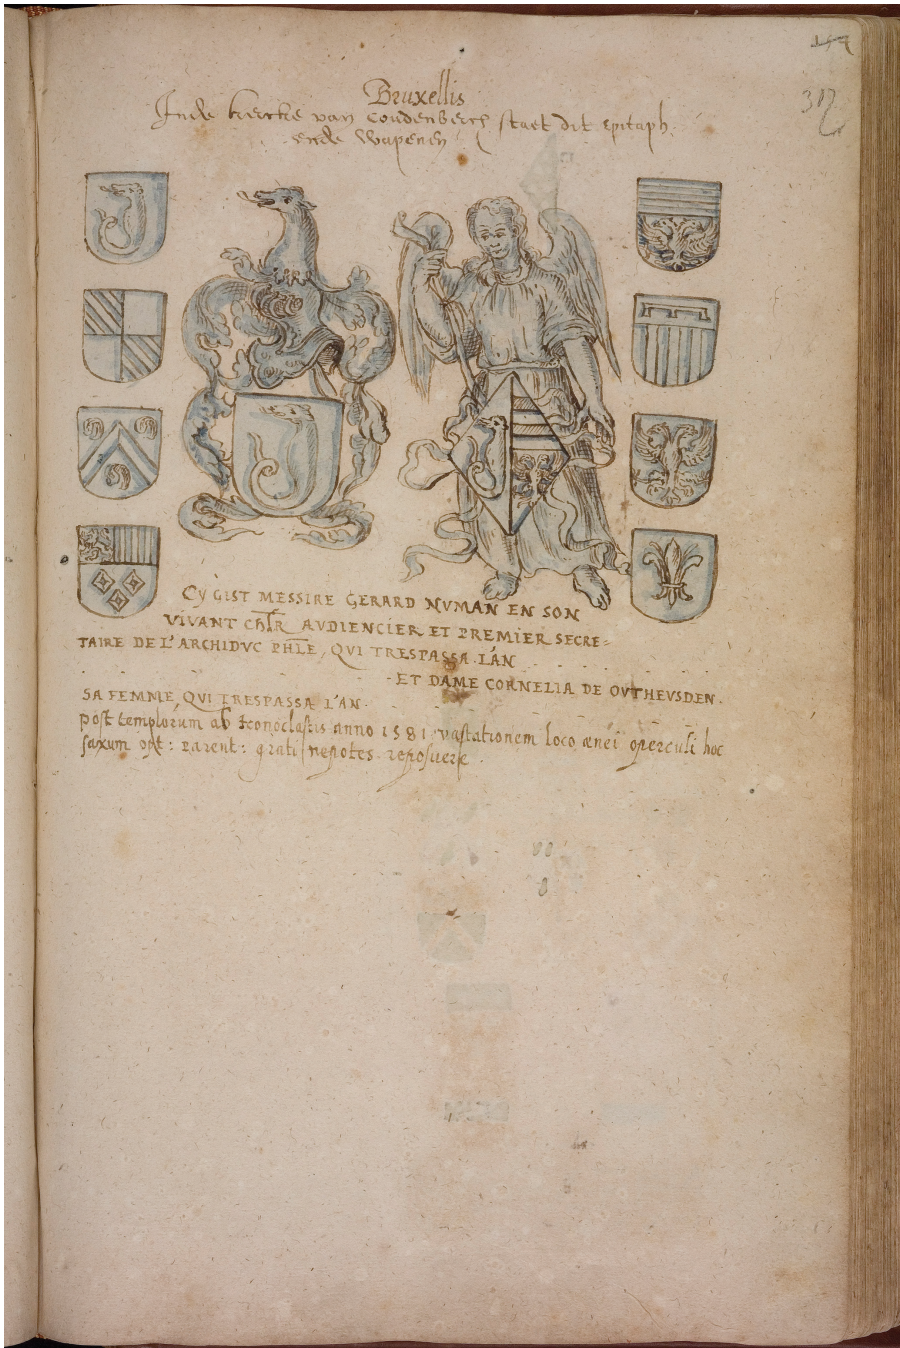 317
Bruxellis
Inde kercke van Coudenberch staet dit epitaph.
ende wapenen
CY GIST MESSIRE GERARD NVMAN EN SON
VIVANT CHLR AVDIENCIER ET PREMIER SECRE=
TAIRE DE L'ARCHIDVC PHLE, QVI TRESPASSA L'AN
ET DAME CORNELIA DE OVTHEVSDEN.
SA FEMME, QVI TRESPASSA L'AN.
post templorum ab Iconoclastis anno 1581 vastationem loco ænei operculi hoc
saxum opt: parent: grati nepotes reposuere.